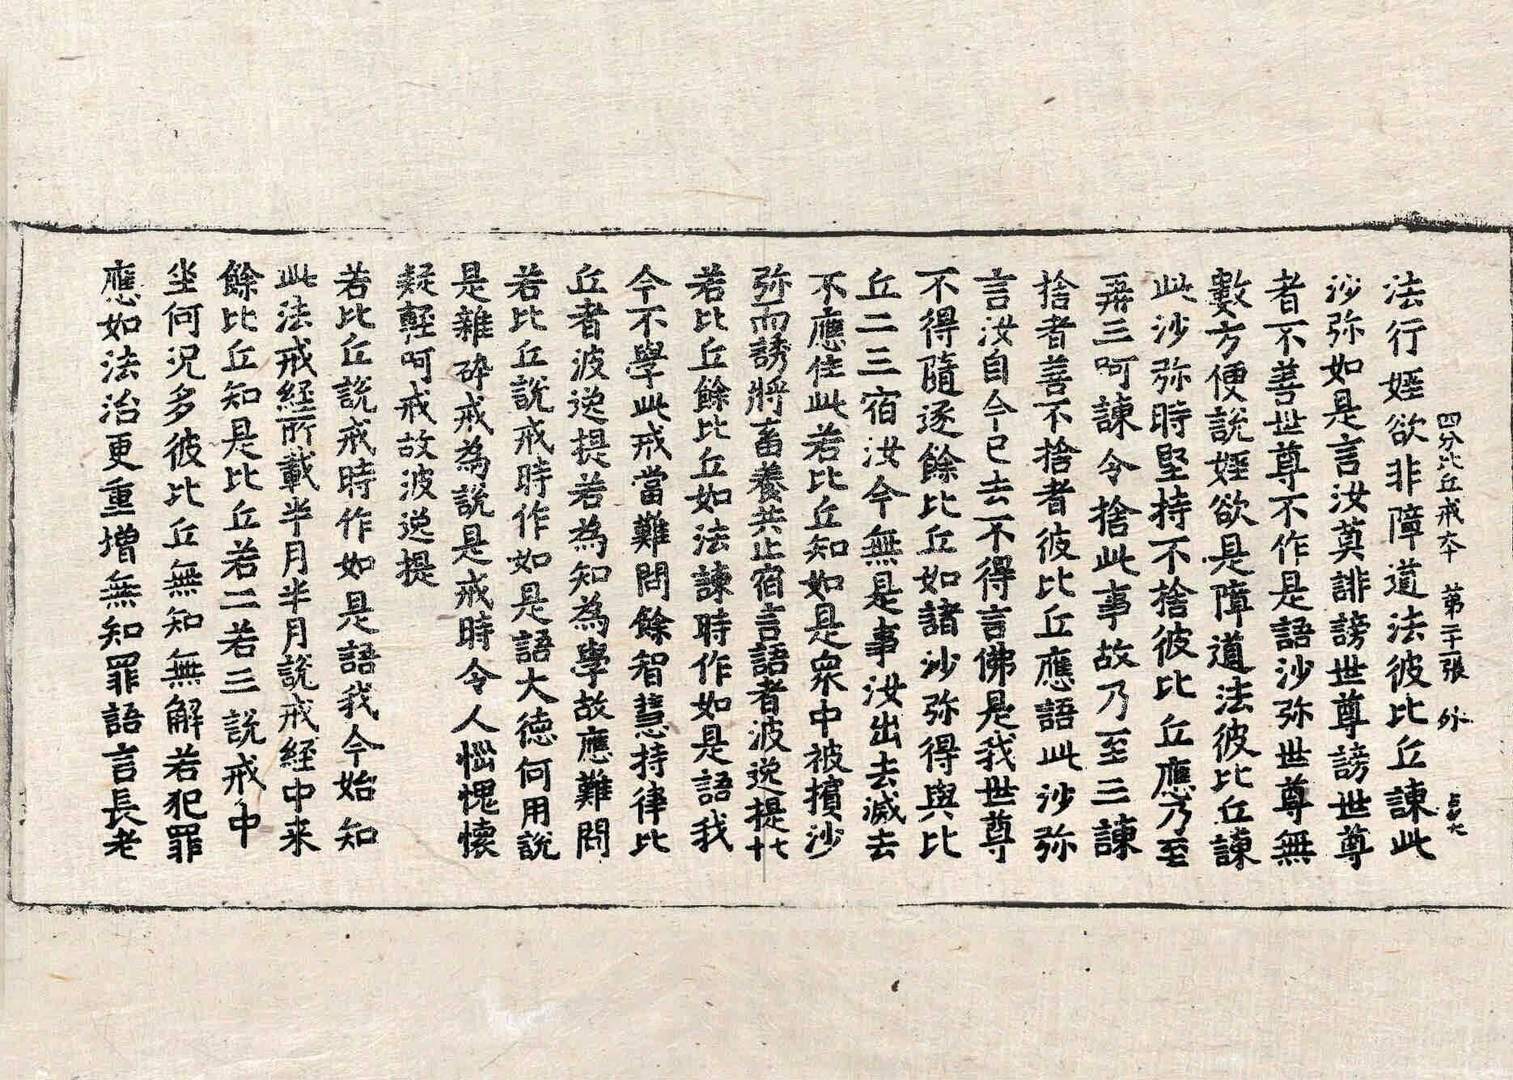 四分比丘戒本 第二十張 外
法行婬欲非障道法彼比丘諫此
沙弥如是言汝莫誹謗世尊謗世尊
者不善世尊不作是語沙弥世尊無
數方便說婬欲是障道法彼比丘諫
此沙弥時堅持不捨彼比丘應乃至
再三呵諫令捨此事故乃至三諫
捨者善不捨者彼比丘應語此沙弥
言汝自今已去不得言佛是我世尊
不得隨逐餘比丘如諸沙弥得與比
丘二三宿汝今無是事汝出去滅去
不應住此若比丘知如是衆中被擯沙
弥而誘將畜養共止宿言語者波逸提七十
若比丘餘比丘如法諫時作如是語我
今不學此戒當難問餘智慧持律比
丘者波逸提若為知為學故應難問
若比丘說戒時作如是語大德何用說
是雜碎戒為說是戒時令人惱愧懷
疑輕呵戒故波逸提
若比丘說戒時作如是語我今始知
此法戒経所載半月半月說戒経中来
餘比丘知是比丘若二若三說戒中
坐何況多彼比丘無知無解若犯罪
應如法治更重增無知罪語言長老